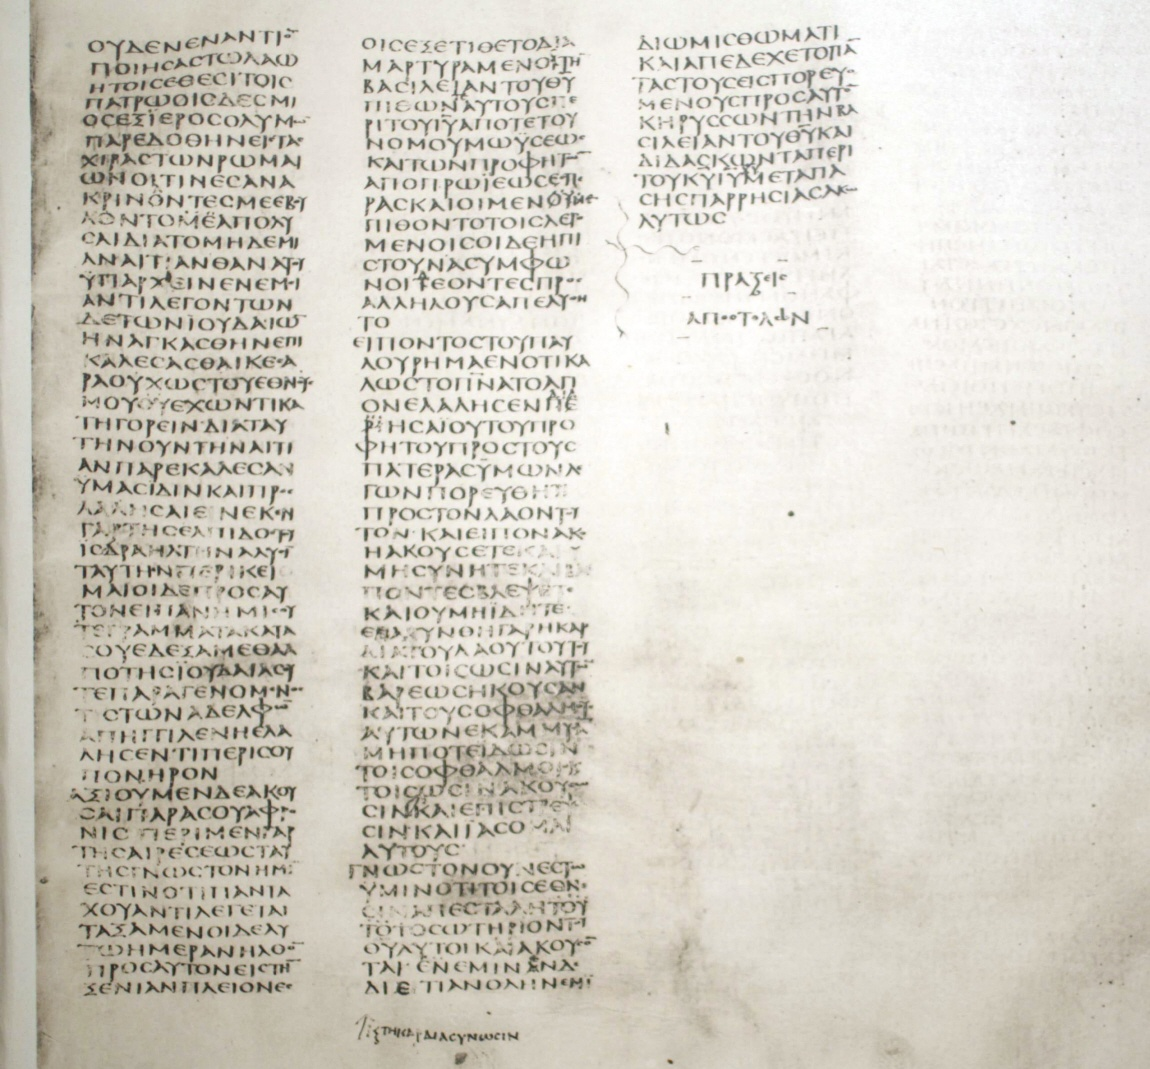 ΟΥΔΕΝΕΝΑΝΤΙΟ̄
ΠΟΙΗϹΑϹΤΩΛΑΩ
ΗΤΟΙϹΕΘΕϹΙΤΟΙϹ
ΠΑΤΡΩΟΙϹΔΕϹΜΙ
ΟϹΕΞΪΕΡΟϹΟΛΥΜΩ̄
ΠΑΡΕΔΟΘΗΝΕΙϹΤΑϹ
ΧΙΡΑϹΤΩΝΡΩΜΑΙ
ΩΝΟΙΤΙΝΕϹΑΝΑ
ΚΡΙΝΟΝΤΕϹΜΕΕΒΟΥ
ΛΟΝΤΟΜΕΑΠΟΛΥ
ϹΑΙΔΙΑΤΟΜΗΔΕΜΙ
ΑΝΑΙΤΙΑΝΘΑΝΑΤΟΥ
ΫΠΑΡΧΙΝΕΝΕΜΟΙ
ΑΝΤΙΛΕΓΟΝΤΩΝ
ΔΕΤΩΝΙΟΥΔΑΙΩ̄
ΗΝΑΓΚΑϹΘΗΝΕΠΙ
ΚΑΛΕϹΑϹΘΑΙΚΕϹΑ
ΡΑΟΥΧΩϹΤΟΥΕΘΝΟΥϹ
ΜΟΥΕΧΩΝΤΙΚΑ
ΤΗΓΟΡΕΙΝΔΙΑΤΑΥ
ΤΗΝΟΥΝΤΗΝΑΙΤΙ
ΑΝΠΑΡΕΚΑΛΕϹΑΝ
ΫΜΑϹΙΔΙΝΚΑΙΠΡΟϹ
ΛΑΛΗϹΑΙΕΙΝΕΚΕΝ
ΓΑΡΤΗϹΕΛΠΙΔΟϹΤΟΥ
ΙϹΔΡΑΗΛΤΗΝΑΛΥϹΙ
ΤΑΥΤΗΝΠΕΡΙΚΕΙ
ΜΑΙΟΙΔΕΠΡΟϹΑΥ
ΤΟΝΕΙΠΑΝΗΜΙϹΟΥ
ΤΕΓΡΑΜΜΑΤΑΚΑΤΑ
ϹΟΥΕΔΕΞΑΜΕΘΑΑ
ΠΟΤΗϹΙΟΥΔΑΙΑϹΟΥ
ΤΕΠΑΡΑΓΕΝΟΜΕΝΟϹ
ΤΙϹΤΩΝΑΔΕΛΦΩ̄
ΑΠΗΓΓΙΛΕΝΗΕΛΑ
ΛΗϹΕΝΤΙΠΕΡΙϹΟΥ
ΠΟΝΗΡΟΝ
ΑΞΙΟΥΜΕΝΔΕΑΚΟΥ
ϹΑΙΠΑΡΑϹΟΥΑΦΡΟ
ΝΙϹΠΕΡΙΜΕΝΓΑΡ
ΤΗϹΑΙΡΕϹΕΩϹΤΑΥ
ΤΗϹΓΝΩϹΤΟΝΗΜῙ
ΕϹΤΙΝΟΤΙΠΑΝΤΑ
ΧΟΥΑΝΤΙΛΕΓΕΤΑΙ
ΤΑΞΑΜΕΝΟΙΔΕΑΥ
ΤΩΗΜΕΡΑΝΗΛΘΟ̄
ΠΡΟϹΑΥΤΟΝΕΙϹΤΗ̄
ΞΕΝΙΑΝΠΛΕΙΟΝΕϹ
ΟΙϹΕΞΕΤΙΘΕΤΟΔΙΑ
ΜΑΡΤΥΡΑΜΕΝΟϹΤΗ̄
ΒΑϹΙΛΕΙΑΝΤΟΥΘΥ
ΠΙΘΩΝΑΥΤΟΥϹΠΕ
ΡΙΤΟΥΙΥΑΠΟΤΕΤΟΥ
ΝΟΜΟΥΜΩΫϹΕΩϹ
ΚΑΙΤΩΝΠΡΟΦΗΤΩ̄
ΑΠΟΠΡΩΪΕΩϹΕϹΠΕ
ΡΑϹΚΑΙΟΙΜΕΝΟΥΝΕ
ΠΙΘΟΝΤΟΤΟΙϹΛΕΓΟ
ΜΕΝΟΙϹΟΙΔΕΗΠΙ
ϹΤΟΥΝΑϹΥΜΦΩ
ΝΟΙΤΕΟΝΤΕϹΠΡΟϹ
ΑΛΛΗΛΟΥϹΑΠΕΛΥΟΝ
ΤΟ
ΕΙΠΟΝΤΟϹΤΟΥΠΑΥ
ΛΟΥΡΗΜΑΕΝΟΤΙΚΑ
ΛΩϹΤΟΠΝΑΤΟΑΓΙ
ΟΝΕΛΑΛΗϹΕΝΠΕ
ΡΙΗϹΑΙΟΥΤΟΥΠΡΟ
ΦΗΤΟΥΠΡΟϹΤΟΥϹ
ΠΑΤΕΡΑϹΫΜΩΝΛΕ
ΓΩΝΠΟΡΕΥΘΗΤΙ
ΠΡΟϹΤΟΝΛΑΟΝΤΟΥ
ΤΟΝΚΑΙΕΙΠΟΝΑΚΟ
ΗΑΚΟΥϹΕΤΕΚΑΙΟΥ
ΜΗϹΥΝΗΤΕΚΑΙΒΛΕ
ΠΟΝΤΕϹΒΛΕΨΕΤΕ
ΚΑΙΟΥΜΗΪΔΗΤΕ
ΕΠΑΧΥΝΘΗΓΑΡΗΚΑΡ
ΔΙΑΤΟΥΛΑΟΥΤΟΥΤΟΥ
ΚΑΙΤΟΙϹΩϹΙΝΑΥΤΩ̄
ΒΑΡΕΩϹΗΚΟΥϹΑΝ
ΚΑΙΤΟΥϹΟΦΘΑΛΜΟΥϹ
ΑΥΤΩΝΕΚΑΜΜΥϹΑ
ΜΗΠΟΤΕΙΔΩϹΙΝ
ΤΟΙϹΟΦΘΑΛΜΟΙϹΚΑΙ
ΤΟΙϹΩϹΙΝΑΚΟΥϹΩ
ϹΙΝΚΑΙΕΠΙϹΤΡΕΨΩ
ϹΙΝΚΑΙΪΑϹΟΜΑΙ
ΑΥΤΟΥϹ
ΓΝΩϹΤΟΝΟΥΝΕϹΤΩ
ΫΜΙΝΟΤΙΤΟΙϹΕΘΝΕ
ϹΙΝΑΠΕϹΤΑΛΗΤΟΥ
ΤΟΤΟϹΩΤΗΡΙΟΝΤΟΥ
ΘΥΑΥΤΟΙΚΑΙΑΚΟΥϹΟ̄
ΤΑΙΕΝΕΜΙΝΕΝΔΕ
ΔΙΕΤΙΑΝΟΛΗΝΕΝΪ
ΤΗΚΑΡΔΙΑϹΥΝΩϹΙΝ
ΔΙΩΜΙϹΘΩΜΑΤΙ
ΚΑΙΑΠΕΔΕΧΕΤΟΠᾹ
ΤΑϹΤΟΥϹΕΙϹΠΟΡΕΥΟ
ΜΕΝΟΥϹΠΡΟϹΑΥΤΟ̄
ΚΗΡΥϹϹΩΝΤΗΝΒΑ
ϹΙΛΕΙΑΝΤΟΥΘΥΚΑΙ
ΔΙΔΑϹΚΩΝΤΑΠΕΡΙ
ΤΟΥΚΥΙΥΜΕΤΑΠΑ
ϹΗϹΠΑΡΡΗϹΙΑϹΑΚΩ
ΛΥΤΩϹ
ΠΡΑΞΕΙϹ
ΑΠΟϹΤΟΛΩΝ